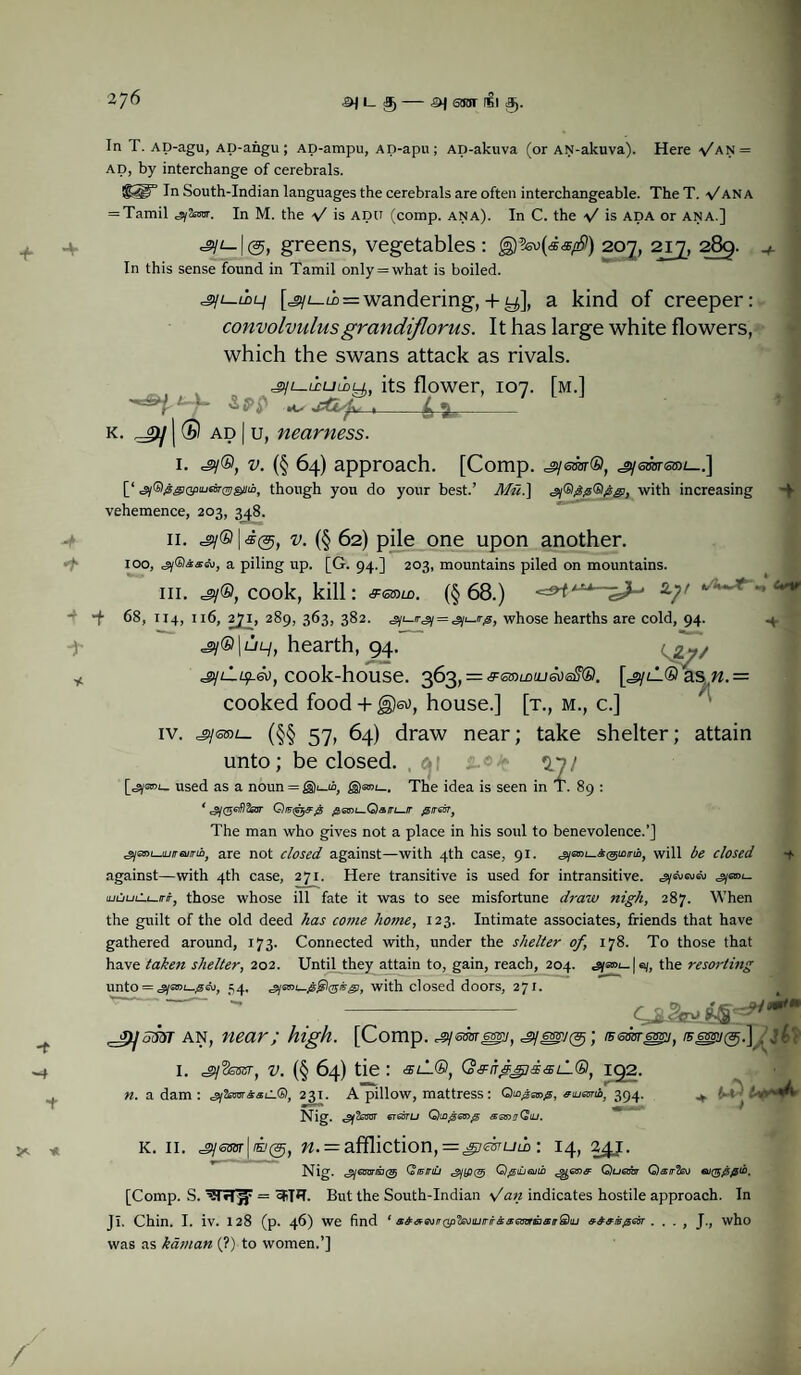 276
அடகு — அணங்கு.
In T. AḌ-agu, AḌ-aṅgu; AḌ-ampu, AḌ-apu; AḌ-akuva (or AṆ-akuva). Here √AṆ =
AḌ, by interchange of cerebrals.
☞ In South-Indian languages the cerebrals are often interchangeable. The T. √AṆA
= Tamil அணை. In M. the √ is AḌU (comp. AṆA). In C. the √ is AḌA or AṆA.]
அட|கு, greens, vegetables: இலை(க்கறி) 207, 217, 289.
In this sense found in Tamil only = what is boiled.
அடம்பு [அடம் = wandering, + பூ], a kind of creeper:
convolvulus grandiflorus. It has large white flowers,
which the swans attack as rivals.
அடம்பம்பூ, its flower, 107. [M.]
K. அ|டு AḌ | U, nearness.
I. அடு, v. (§ 64) approach. [Comp. அண்டு, அண்டை.]
[‘அடுத்துமுயன்றாலும், though you do your best.’ Mū.] அடுத்தடுத்து, with increasing
vehemence, 203, 348.
II. அடு|க்கு, v. (§ 62) pile one upon another.
100, அடுக்கல், a piling up. [G. 94.] 203, mountains piled on mountains.
III. அடு, cook, kill: சமை. (§ 68.)
68, 114, 116, 271, 289, 363, 382. அடாஅ = அடாத, whose hearths are cold, 94.
அடு|ப்பு, hearth, 94.
271
அட்டில், cook-house. 363, = சமையல்வீடு. [அட்டு as n. =
cooked food + இல், house.] [T., M., C.]
IV. அடை (§§ 57, 64) draw near; take shelter; attain
unto; be closed. 271
[அடை used as a noun = இடம், இடை. The idea is seen in T. 89:
‘அருளினை நெஞ்சத் தடைகொடா தான்,
The man who gives not a place in his soul to benevolence.’]
அடையாவாம், are not closed against—with 4th case, 91. அடைக்குமாம், will be closed
against—with 4th case, 271. Here transitive is used for intransitive. அல்லல் அடை
யப்பட்டார், those whose ill fate it was to see misfortune draw nigh, 287. When
the guilt of the old deed has come home, 123. Intimate associates, friends that have
gathered around, 173. Connected with, under the shelter of, 178. To those that
have taken shelter, 202. Until they attain to, gain, reach, 204. அடை|வு, the resorting
unto = அடைதல், 54. அடைத்திருந்து, with closed doors, 271.
அண் AṆ, near; high. [Comp. அண்ணு, அணுகு; நண்ணு, நணுகு.]
I. அணை, v. (§ 64) tie: கட்டு, சேர்த்துக்கட்டு, 192.
n. a dam: அணைக்கட்டு, 231. A pillow, mattress: மெத்தை, சயனம், 394.
Nig. அணை என்ப மெத்தை கரையே.
K. II. அண|ங்கு, n. = affliction, = துன்பம்: 14, 241.
Nig. அணங்கு நோய் அழகு தெய்வம் ஆசை பெண் கொலை வருத்தம்.
[Comp. S. अनङ्ग = काम. But the South-Indian √aṇ indicates hostile approach. In
Jī. Chin. I. iv. 128 (p. 46) we find ‘ . . . . , J., who
was as kāman (?) to women.’]